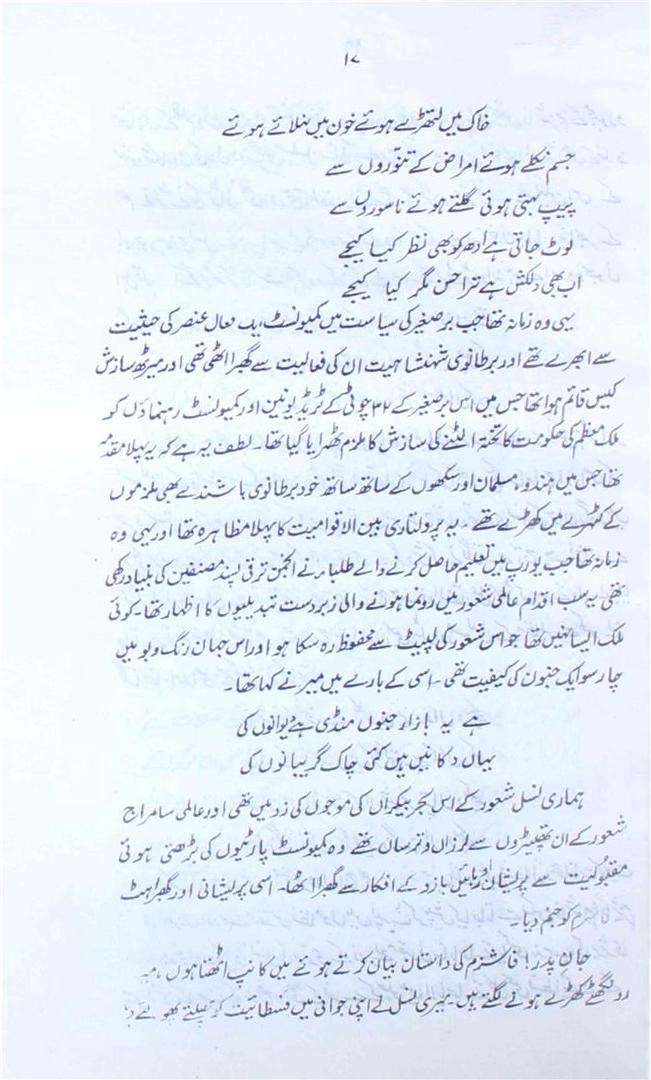 ۱۷
خاک میں لتھڑے ہوئے خون میں نہلائے ہوئے
جسم نکلے ہوئے امراض کے تنوّروں سے
پیپ بہتی ہوئی گلتے ہوئے ناسوروں سے
لوٹ جاتی ہے ادھر کو بھی نظر کیا کیجیے
اب بھی دلکش ہے ترا حسن مگر کیا کیجیے
یہی وہ زمانہ تھا جب برصغیر کی سیاست میں کمیونسٹ ایک فعال عنصر کی حیثیت
سے ابھرے تھے اور برطانوی شہنشاہیت ان کی فعالیت سے گھبرا اٹھی تھی اور میرٹھ سازش
کیس قائم ہوا تھا جس میں اس برصغیر کے ۳۲ چوٹی کے ٹریڈ یونین اور کمیونسٹ رہنماؤں کو
ملک معظم کی حکومت کا تختہ الٹنے کی سازش کا ملزم ٹھہرایا گیا تھا۔ لطف یہ ہے کہ یہ پہلا مقدمہ
تھا جس میں ہندو، مسلمان اور سکھوں کے ساتھ ساتھ خود برطانوی باشندے بھی ملزموں
کے کٹہرے میں کھڑے تھے۔ یہ پرولتاری بین الاقوامیت کا پہلا مظاہرہ تھا اور یہی وہ
زمانہ تھا جب یورپ میں تعلیم حاصل کرنے والے طلباء نے انجمن ترقی پسند مصنفین کی بنیاد رکھی
تھی یہ سب اقدام عالمی شعور میں رونما ہونے والی زبردست تبدیلیوں کا اظہار تھا۔ کوئی
ملک ایسا نہیں تھا جو اس شعور کی لپیٹ سے محفوظ رہ سکا ہو اور اس جہان رنگ و بو میں
چار سو ایک جنون کی کیفیت تھی۔ اسی کے بارے میں میر نے کہا تھا۔
ہے یہ بازارِ جنوں منڈی ہے دیوانوں کی
یہاں دکانیں ہیں کئی چاک گریبانوں کی
ہماری نسل شعور کے اس بحر بیکراں کی موجوں کی زد میں تھی اور عالمی سامراج
شعور کے ان تھپیڑوں سے لرزاں و ترساں تھے وہ کمیونسٹ پارٹیوں کی بڑھتی ہوئی
مقبولیت سے پریشان اور بائیں بازو کے افکار سے گھبرا اٹھا۔ اسی پریشانی اور گھبراہٹ
کو جنم دیا۔
جان پدر! فاشزم کی داستان بیان کرتے ہوئے میں کانپ اٹھتا ہوں،
رونگٹے کھڑے ہونے لگتے ہیں۔ میری نسل نے اپنی جوانی میں فسطائیت کو پھلتے پھولتے